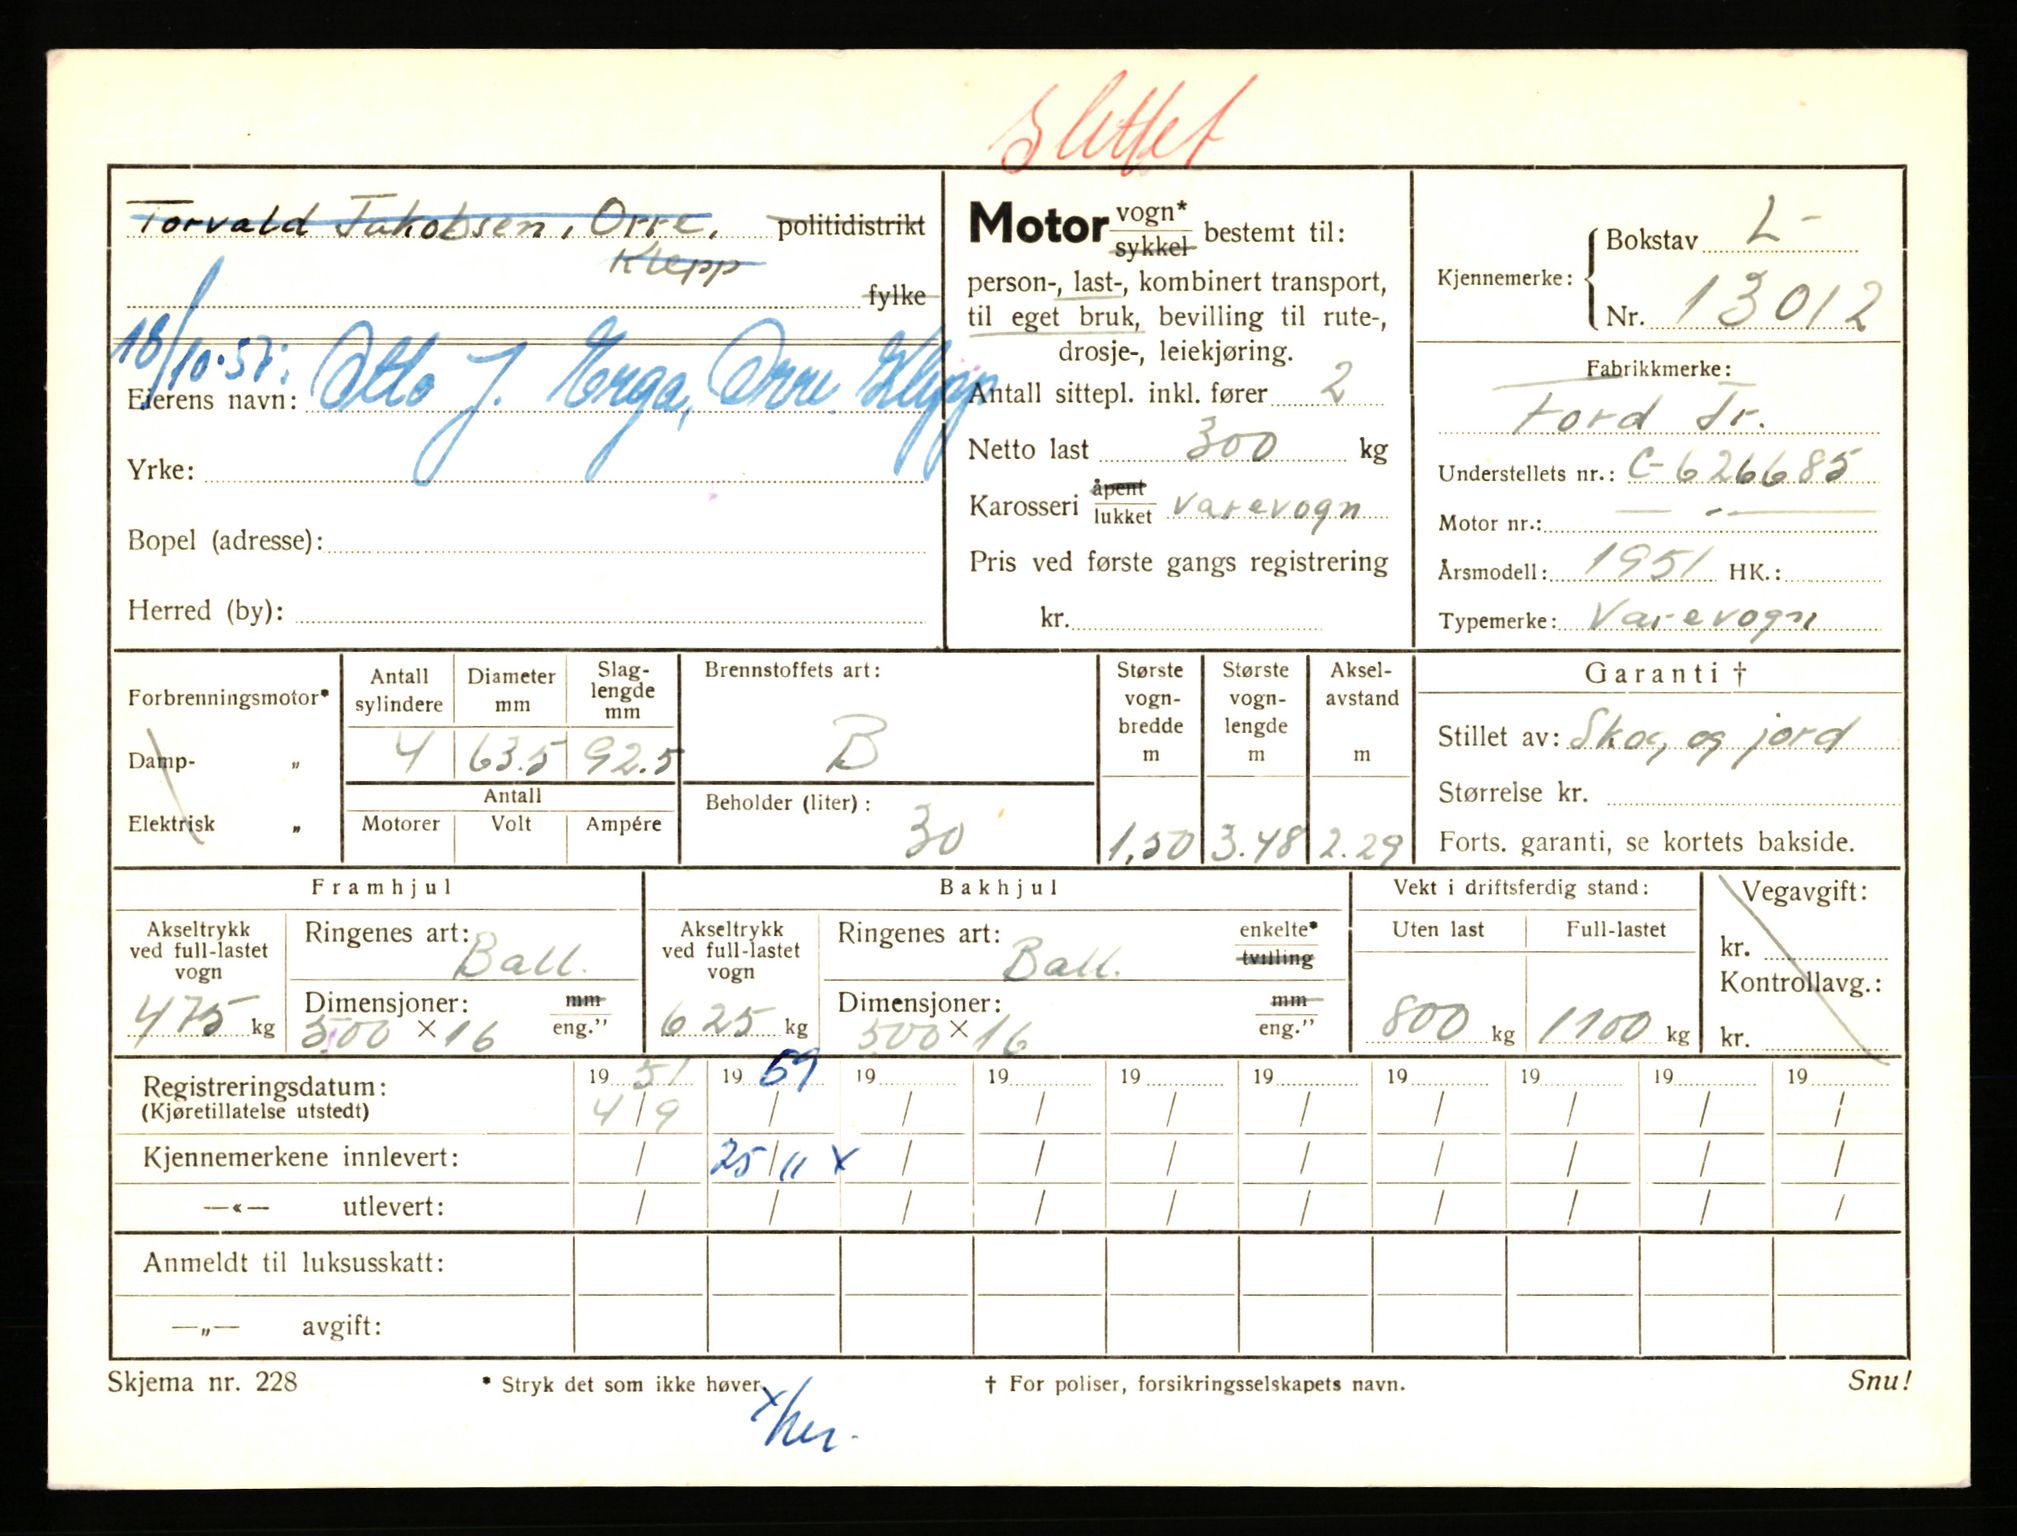 Slettet
Torvald Jakobsen, Orre, politidistrikt
Klepp
fylke
18/10-57: Otto J. Erga, Orre. Klepp
Eierens navn:
Yrke:
Bopel (adresse):
Herred (by):
Motor vogn* / sykkel bestemt til:
person-, last-, kombinert transport,
til eget bruk, bevilling til rute-,
drosje-, leiekjøring.
Antall sittepl. inkl. fører 2
Netto last 300 kg
Karosseri åpent / lukket varevogn
Pris ved første gangs registrering
kr.
Kjennemerke: Bokstav L-
Nr. 13012
Fabrikkmerke:
Ford Tr.
Understellets nr.: C-626685
Motor nr.: — - —
Årsmodell: 1951 HK.:
Typemerke: Varevogn
Forbrenningsmotor*
Damp- „
Elektrisk „
Antall sylindere 4
Diameter mm 63.5
Slag-lengde mm 92.5
Antall
Motorer Volt Ampére
Brennstoffets art:
B
Beholder (liter):
30
Største vogn-bredde m 1,50
Største vogn-lengde m 3.48
Aksel-avstand m 2.29
Garanti †
Stillet av: Skog og jord
Størrelse kr.
Forts. garanti, se kortets bakside.
Framhjul
Akseltrykk ved full-lastet vogn
475 kg
Ringenes art: Ball.
Dimensjoner: mm
500 × 16 eng.”
Bakhjul
Akseltrykk ved full-lastet vogn
625 kg
Ringenes art: Ball. enkelte* tvilling
Dimensjoner: mm
500 × 16 eng.”
Vekt i driftsferdig stand:
Uten last Full-lastet
800 kg 1100 kg
Vegavgift:
kr.
Kontrollavg.:
kr.
Registreringsdatum: 19 51 19 59 19 19 19 19 19 19 19 19
(Kjøretillatelse utstedt) 4/9 / / / / / / / / /
Kjennemerkene innlevert: / 25/11 x / / / / / / / /
—«— utlevert: / / / / / / / / / /
Anmeldt til luksusskatt:
—„— avgift:
Skjema nr. 228 * Stryk det som ikke høver. † For poliser, forsikringsselskapets navn. Snu!
x/her.